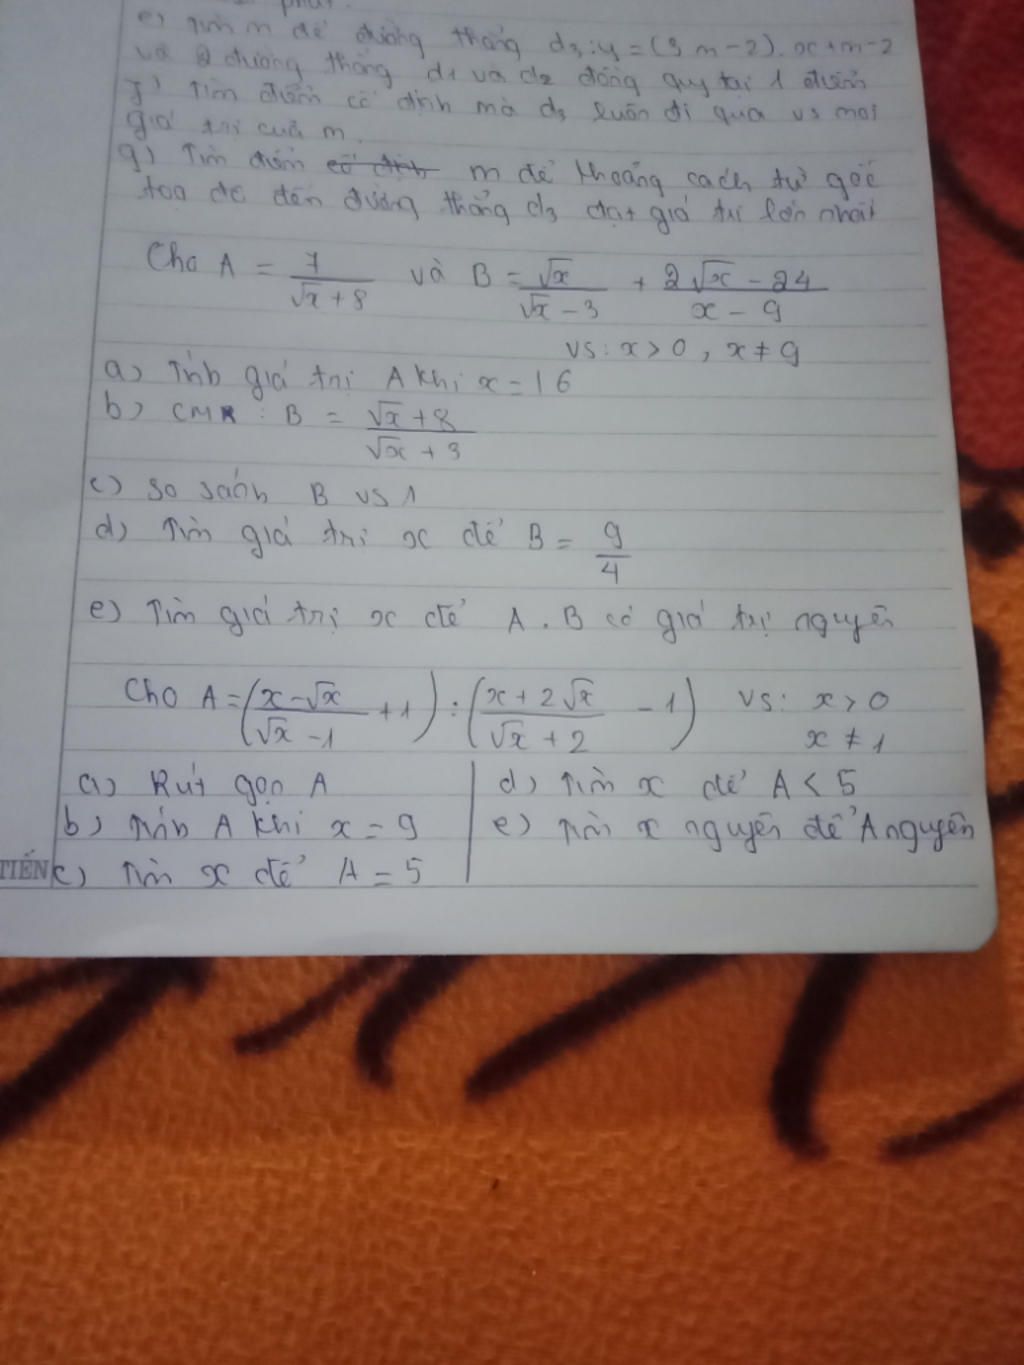 phút.
e) Tìm m để đường thẳng d₃: y = (3m-2).x+m-2
và 2 đường thẳng d₁ và d₂ đồng quy tại 1 điểm
f) Tìm điểm cố định mà d₃ luôn đi qua vs mọi
giá trị của m.
g) Tìm điểm cố định m để khoảng cách từ gốc
toạ độ đến đường thẳng d₃ đạt giá trị lớn nhất
Cho A = 7/(√x + 8) và B = √x/(√x - 3) + (2√x - 24)/(x - 9)
vs: x > 0, x ≠ 9
a) Tính giá trị A khi x = 16
b) CMR: B = (√x + 8)/(√x + 3)
c) so sánh B vs 1
d) Tìm giá trị x để B = 9/4
e) Tìm giá trị x để A . B có giá trị nguyên
Cho A = ((x - √x)/(√x - 1) + 1) : ((x + 2√x)/(√x + 2) - 1) vs: x > 0
x ≠ 1
a) Rút gọn A
b) Tính A khi x = 9
c) Tìm x để A = 5
d) Tìm x để A < 5
e) Tìm x nguyên để A nguyên
TIẾN